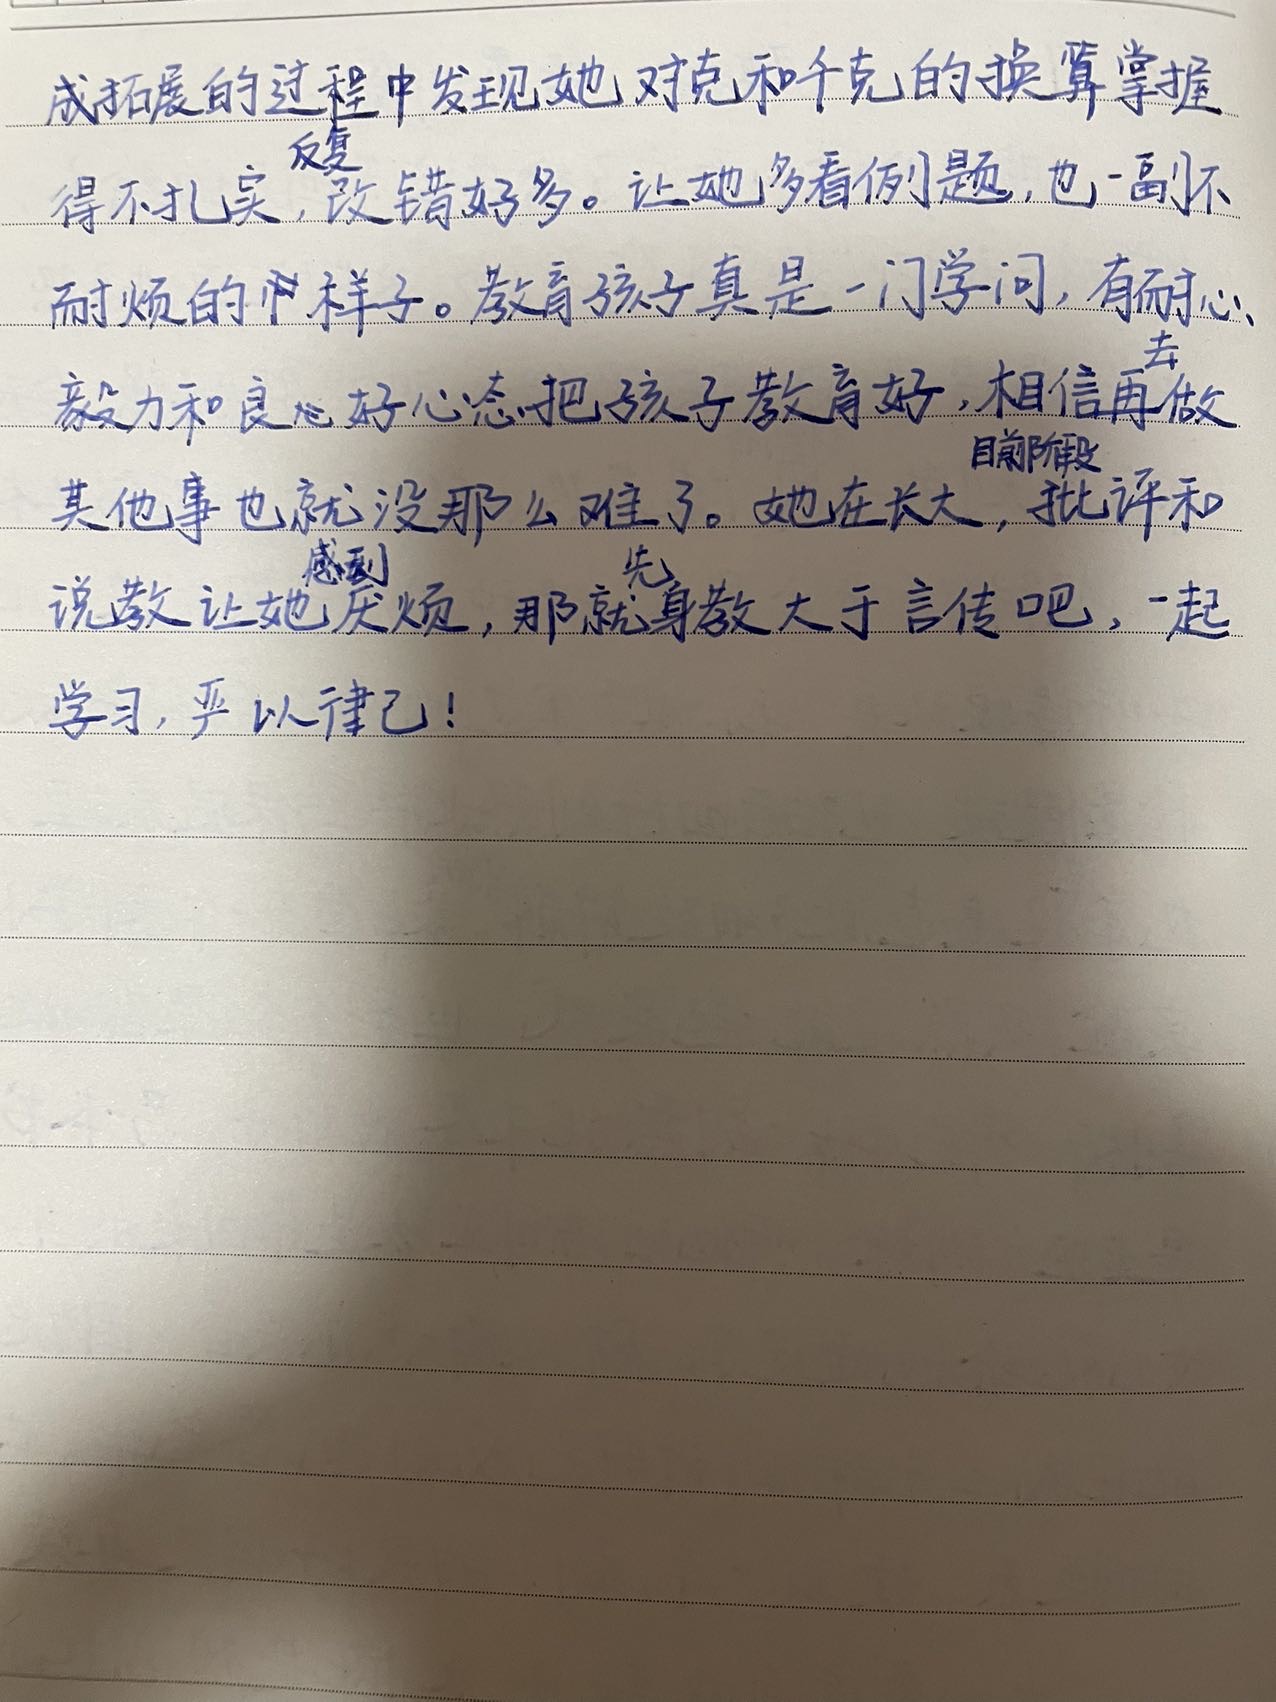 成拓展的过程中发现她对克和千克的换算掌握
反复
得不扎实，改错好多。让她多看例题，也一副不
耐烦的样子。教育孩子真是一门学问，有耐心、
去
毅力和良好心态把孩子教育好，相信再做
目前阶段
其他事也就没那么难了。她在长大，批评和
感到 先
说教让她厌烦，那就身教大于言传吧，一起
学习，严以律己！